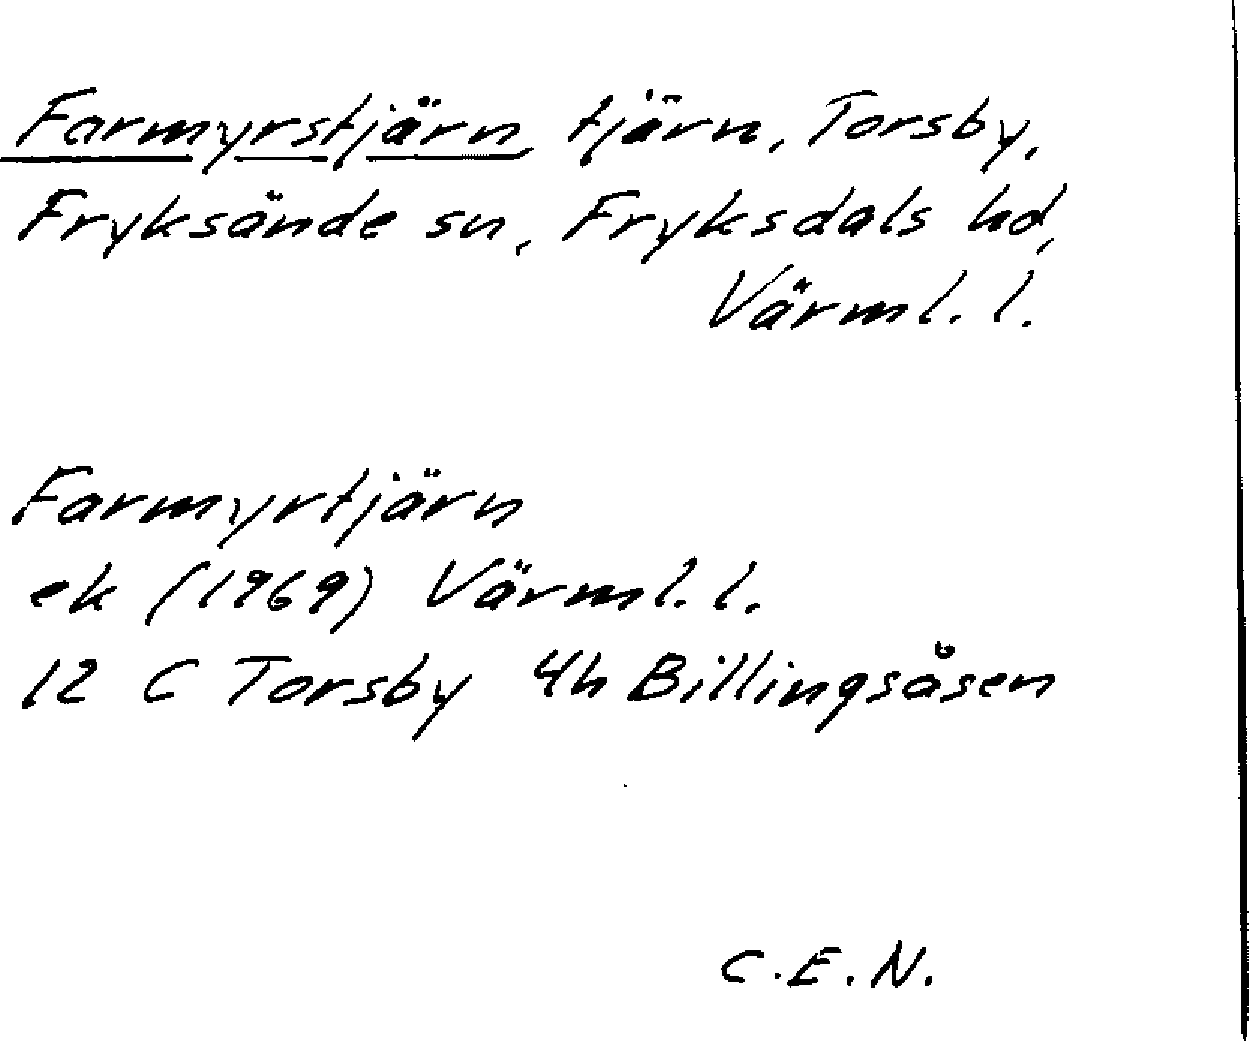 Farmyrstjärn, tjärn, Torsby,
Fryksände sn, Fryksdals hd,
Värml. l.
Farmyrtjärn
ek (1969) Värml. l.
12 C Torsby 4h Billingsåsen
C.E.N.